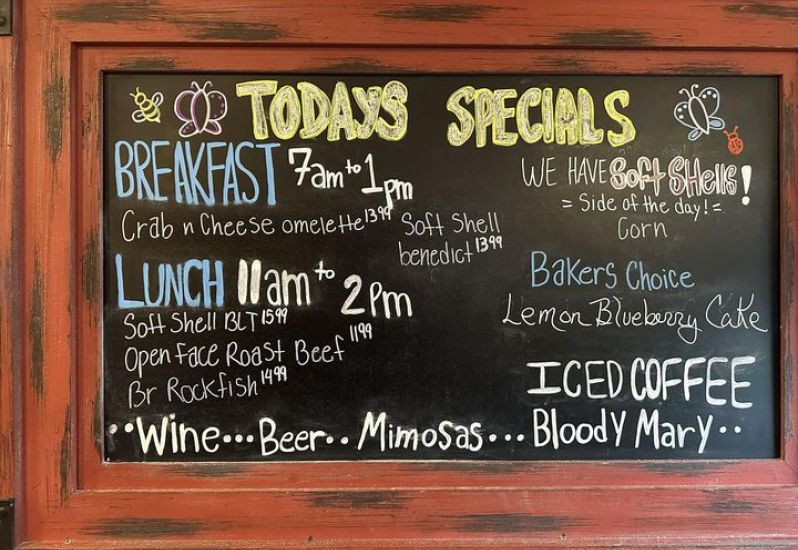 TODAYS SPECIALS
BREAKFAST 7am to 1pm
Crab n Cheese omelette 13.99
Soft Shell
benedict 13.99
LUNCH 11am to 2pm
Soft Shell BLT 15.99
Open Face Roast Beef 11.99
Br Rockfish 14.99
WE HAVE Soft SHells!
= Side of the day! =
Corn
Bakers Choice
Lemon Blueberry Cake
ICED COFFEE
··Wine···Beer··Mimosas···Bloody Mary··